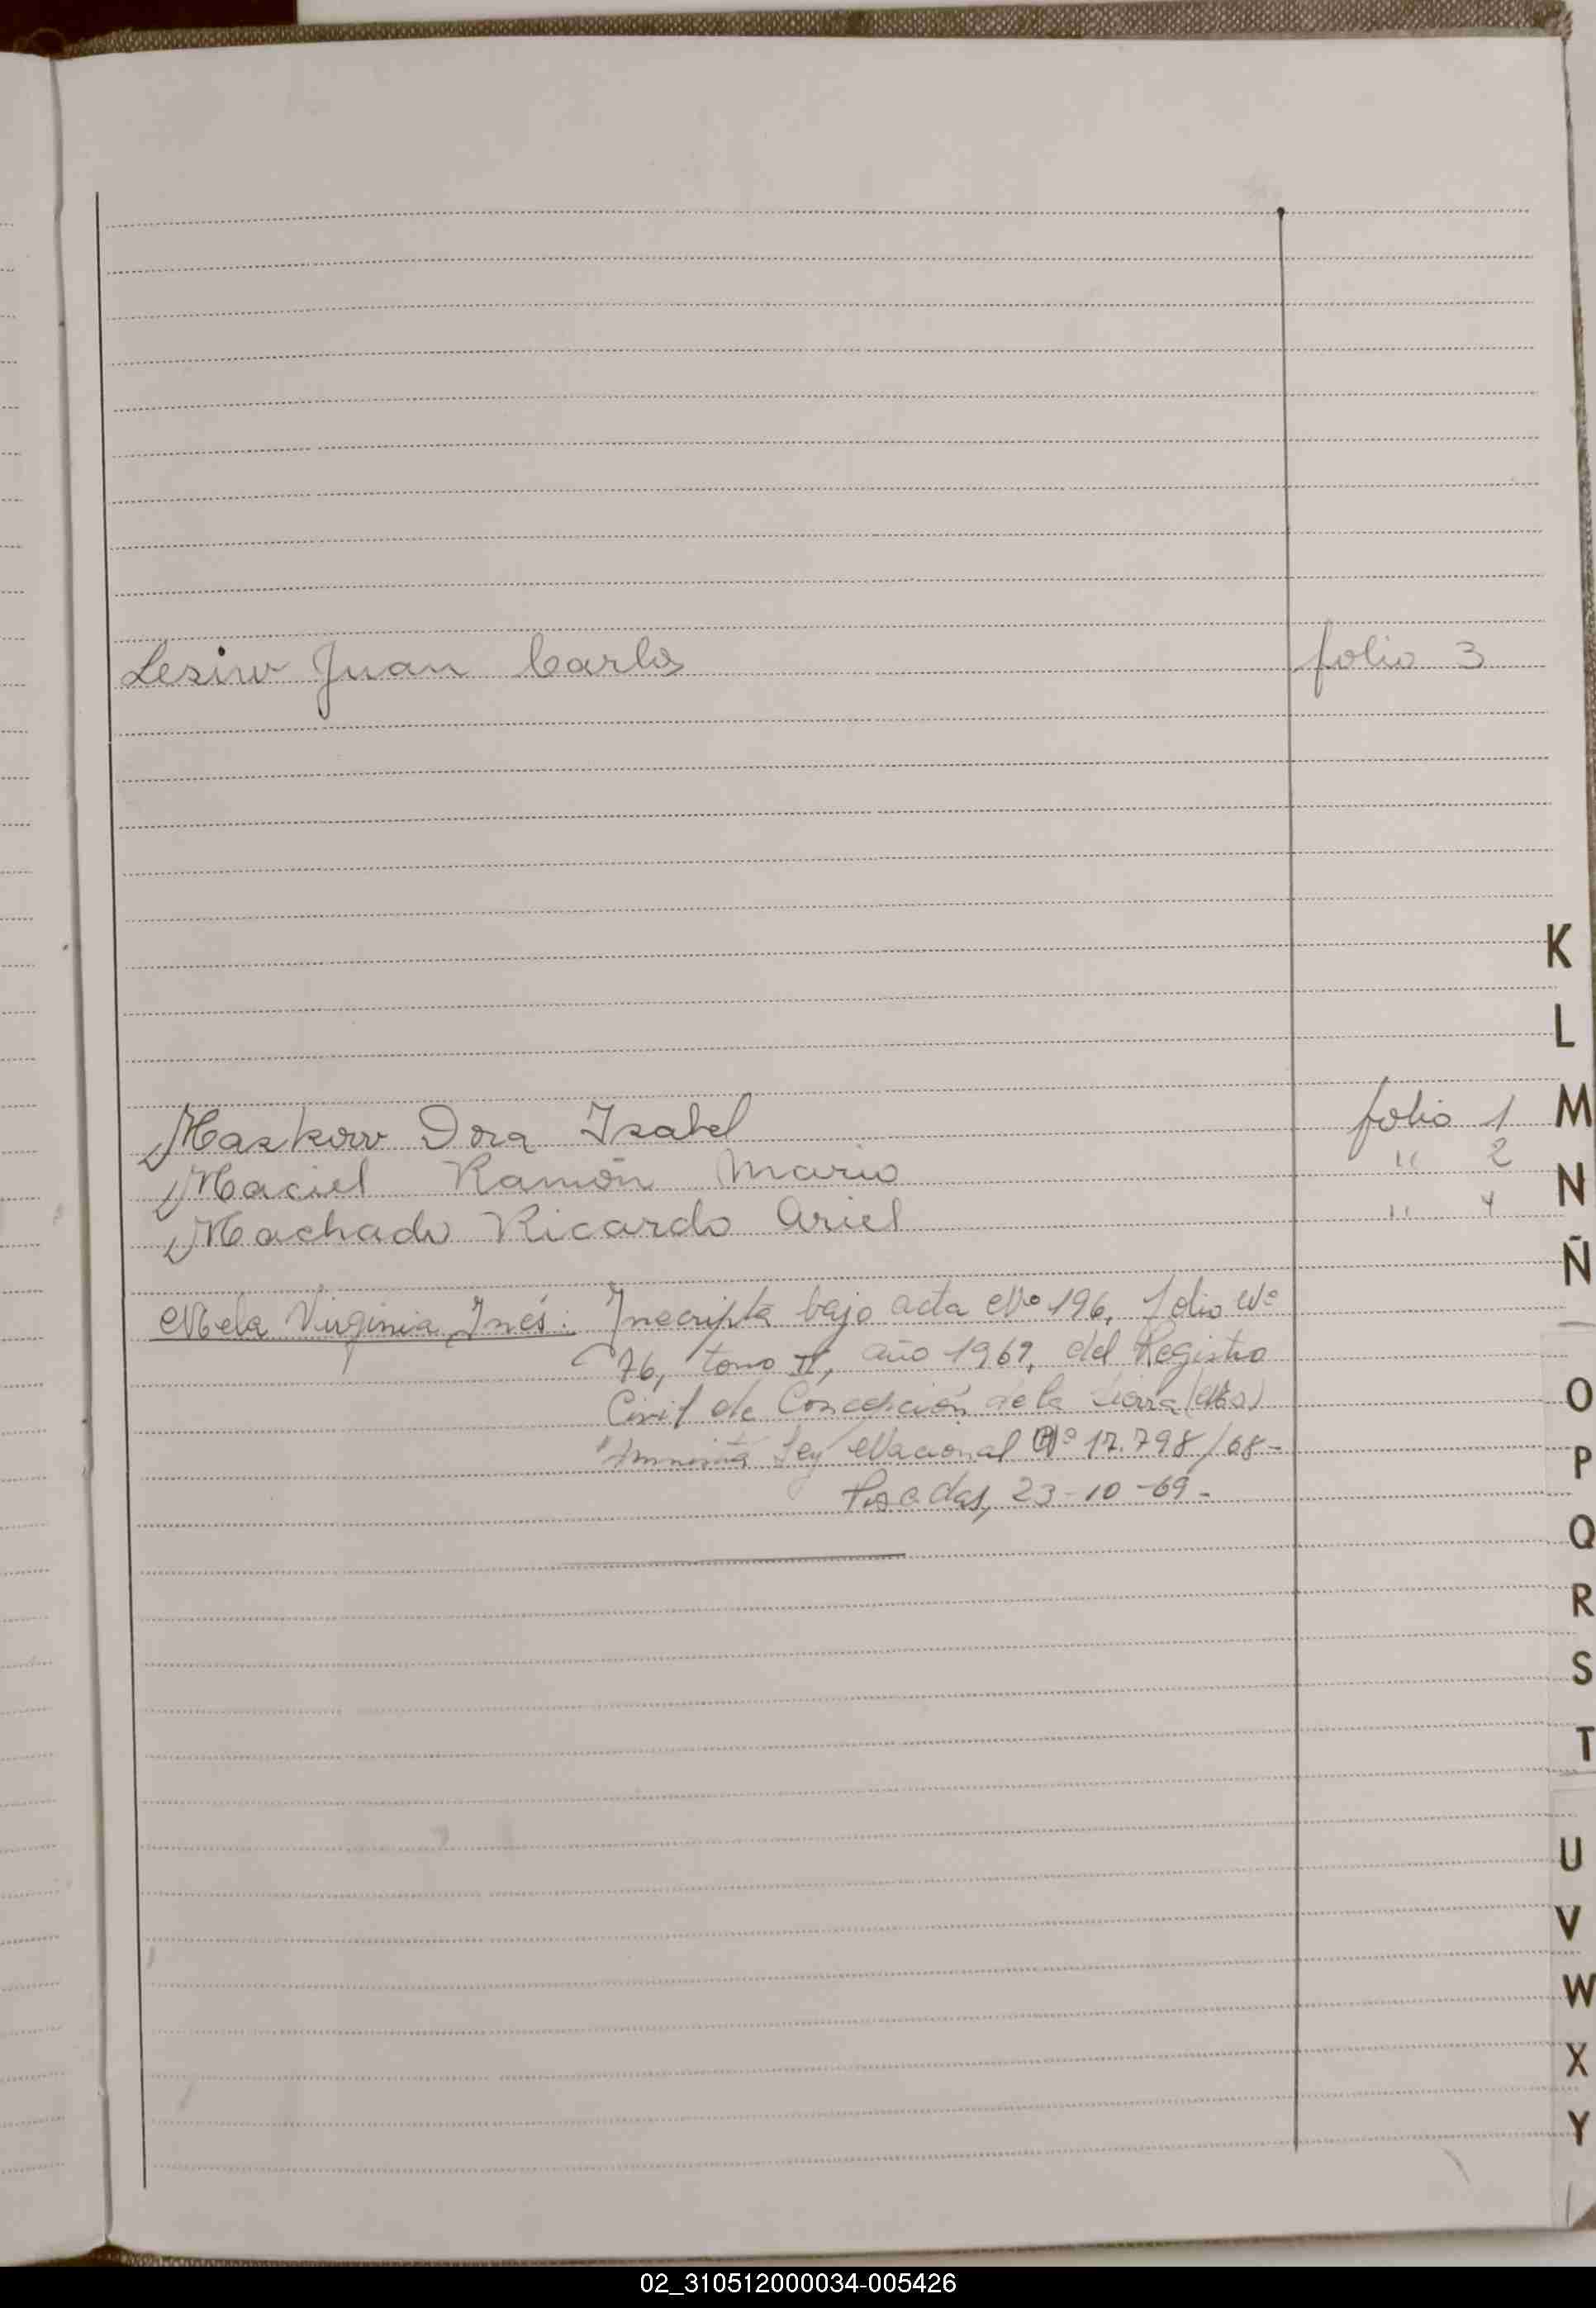 Lesiw Juan Carlos folio 3
K
L
Maskow Dora Isabel folio 1
M
Maciel Ramón Mario " 2
N
Machado Ricardo Ariel " 4
Ñ
Mela Virginia Inés: Inscripta bajo acta Nº 196, folio Nº
76, tomo II, año 1969, del Registro
Civil de Concepción de la Sierra (Mes)
O
Amnistía Ley Nacional Nº 17.798/68-
P
Posadas, 23-10-69-
Q
R
S
T
U
V
W
X
Y
02_310512000034-005426